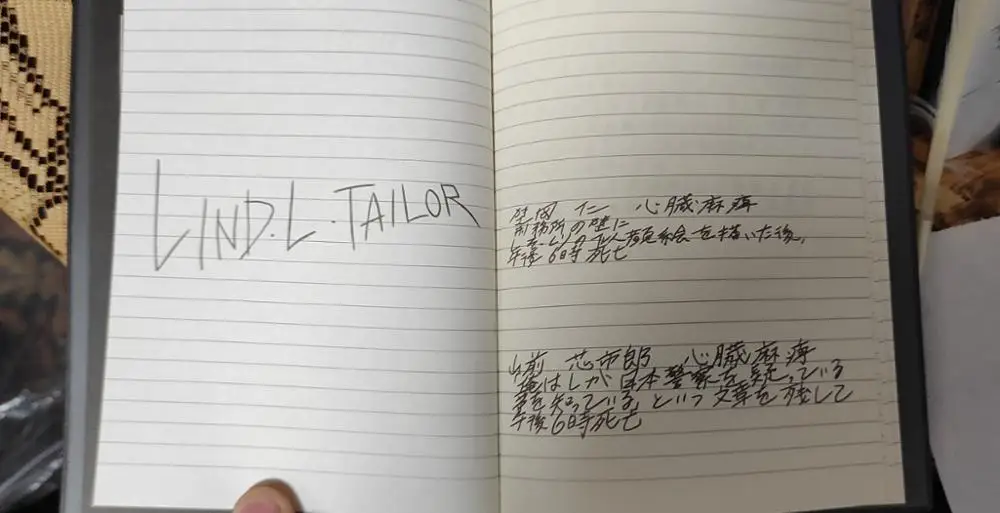 LIND.L.TAILOR
岡 仁 心臓麻痺
刑務所の壁に
レイ・ムリの似顔絵を描いた後、
午後6時死亡
山前 芯市郎 心臓麻痺
俺はLが日本警察を疑っている
事を知っている、という文章を残して
午後6時死亡